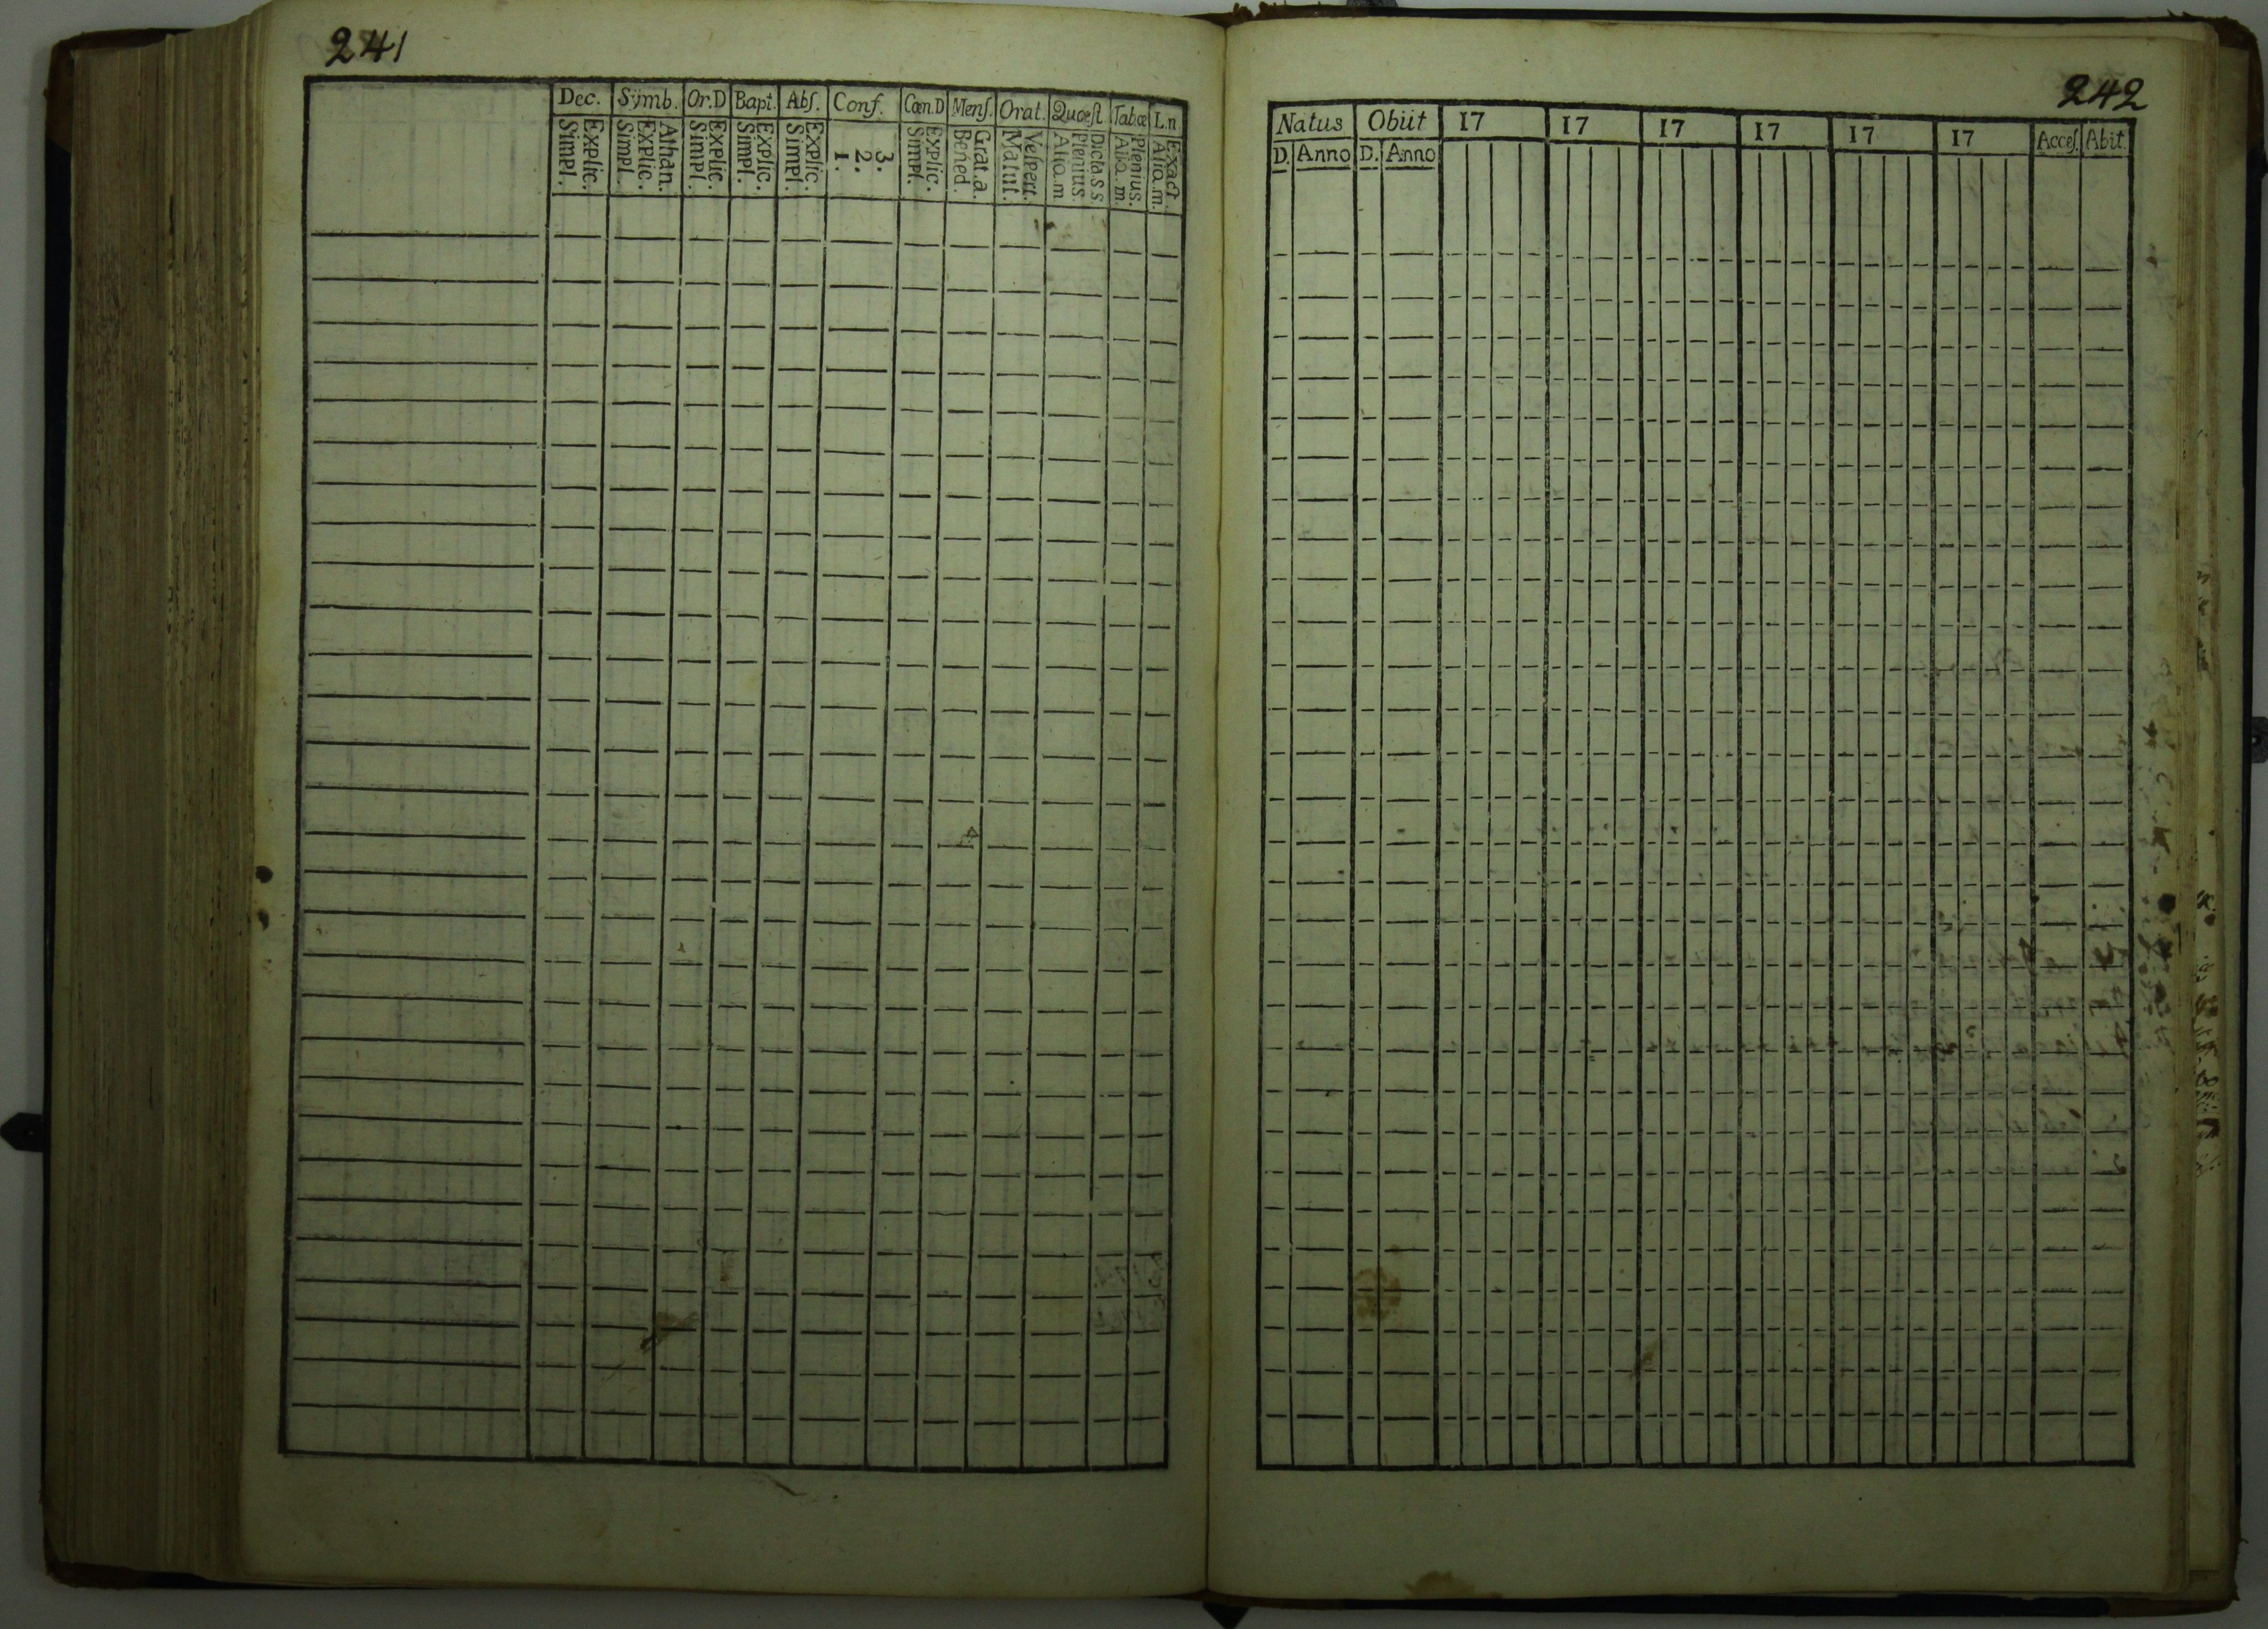 241
Dec. Sÿmb. Or.D Bapt. Abſ. Conf. Cœn.D Menſ. Orat. Quæſt Tabæ L.n.
Explic. Simpl. Athan. Explic. Simpl. Explic. Simpl. Explic. Simpl. Explic. Simpl. 3. 2. 1. Explic. Simpl. Grat.a. Bened. Veſpert. Matut. Dicta.S.S Plenius. Aliq.m Plenius. Aliq.m. Exact. Aliq.m.
242
Natus Obiit 17 17 17 17 17 17 Acceſ. Abit.
D. Anno D. Anno